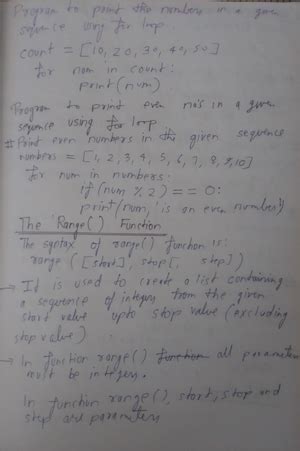 Program to print the numbers in a given
sequence using for loop.
count = [10, 20, 30, 40, 50]
for num in count:
print(num)
Program to print even no's in a given
sequence using for loop
# Print even numbers in the given sequence
numbers = [1, 2, 3, 4, 5, 6, 7, 8, 9, 10]
for num in numbers:
if (num % 2) == 0:
print(num, 'is an even number')
The Range() Function
The syntax of range() function is:
range ([start], stop[, step])
→ It is used to create a list containing
a sequence of integers from the given
start value upto stop value (excluding
stop value)
→ In function range() function all parameters
must be integers.
In function range(), start, stop and
step are parameters